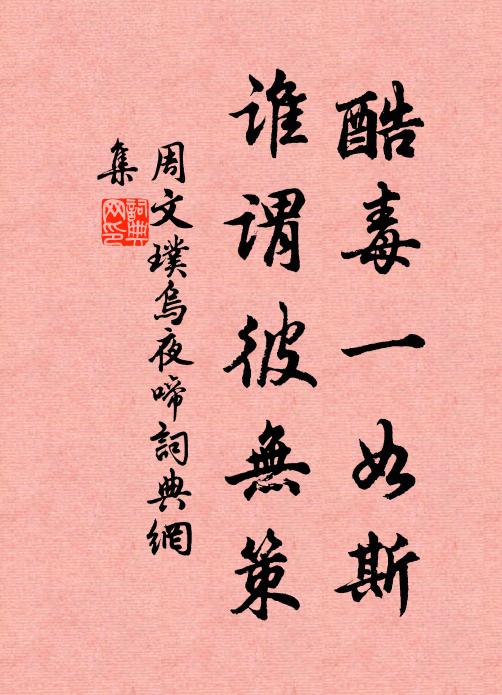 酷毒一如斯
誰謂彼無策
周文璞烏夜啼詞典網
集
詞典
网印